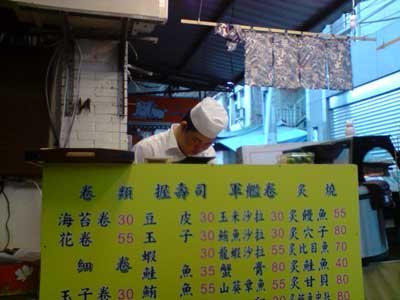 卷 類 握壽司 軍艦卷 炙 燒
海苔卷 30 豆 皮 30 玉米沙拉 30 炙鰻魚 55
花卷 55 玉 子 30 鮪魚沙拉 30 炙穴子 80
細 卷 蝦 35 龍蝦沙拉 50 炙比目魚 70
鮭 魚 35 蟹 膏 80 炙鮭魚 40
玉子卷 30 鮪 魚 55 山葵章魚 55 炙甘貝 80